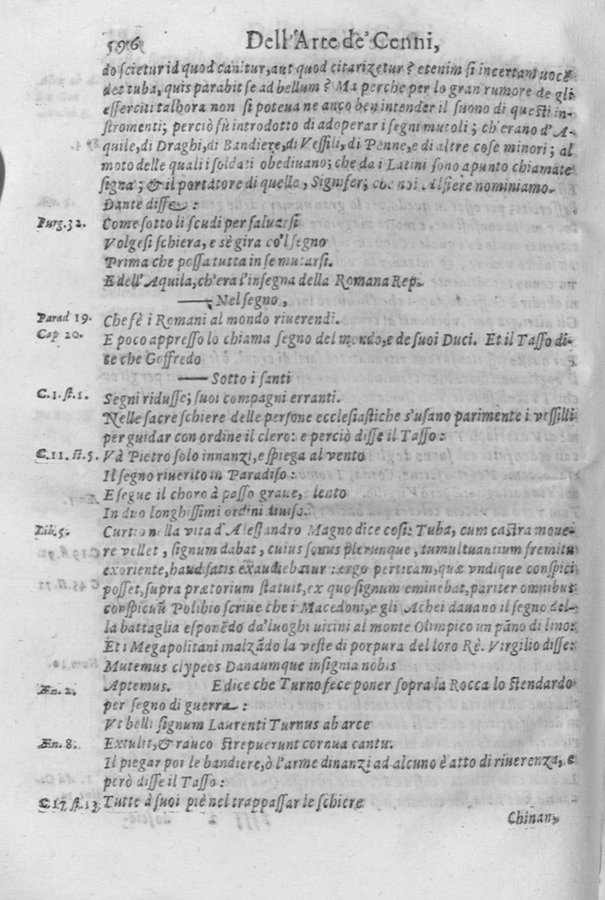 596 Dell'Arte de' Cenni,
do scietur id quod canitur, aut quod citarizetur? etenim si incertam uocē
det tuba, quis parabit se ad bellum? Ma perche per lo gran rumore de gli
esserciti talhora non si poteua ne anco ben intender il suono di questi in-
stromenti; perciò fù introdotto di adoperar i segni mutoli; ch'erano d'A-
quile, di Draghi, di Bandiere, di Vessili, di Penne, e di altre cose minori; al
moto delle quali i soldati obediuano; che da i Latini sono apunto chiamate
signa; & il portatore di quelle, Signifer; che noi Alfiere nominiamo.
Dante disse:
Purg. 32. Come sotto li scudi per saluarsi
Volgesi schiera, e sè gira co'l segno
Prima che possa tutta in se mutarsi.
E dell'Aquila, ch'era l'insegna della Romana Rep.
Nel segno,
Parad 19. Che fè i Romani al mondo riuerendi.
Cap 20. E poco appresso lo chiama segno del mondo, e de suoi Duci. Et il Tasso di-
ße che Goffredo
Sotto i santi
C. 1. st. 1. Segni ridusse; suoi compagni erranti.
Nelle sacre schiere delle persone ecclesiastiche s'usano parimente i vessilli
per guidar con ordine il clero: e perciò disse il Tasso:
C. 11. st. 5. Và Pietro solo innanzi, e spiega al vento
Il segno riuerito in Paradiso:
E segue il choro à passo graue, lento
In duo longhissimi ordini
Lib. 5. Curtio nella vita d'Alessandro Magno dice così: Tuba, cum castra moue-
re vellet, signum dabat, cuius sonus plerunque, tumultuantium fremitu
exoriente, haud satis exaudiebatur: ergo perticam, quæ vndique conspici
posset, supra prætorium statuit, ex quo signum eminebat, pariter omnibus
conspicuū Polibio scriue che i Macedoni, e gli Achei dauano il segno del-
la battaglia esponēdo da' luoghi uicini al monte Olimpico un pāno di lino:
Et i Megapolitani malzādo la veste di porpura del loro Rè. Virgilio disse:
Mutemus clypeos Danaumque insignia nobis
Æn. 2. Aptemus. E dice che Turno fece poner sopra la Rocca lo stendardo
per segno di guerra:
Vt belli signum Laurenti Turnus ab arce
Æn. 8. Extulit, & rauco strepuerunt cornua cantu.
Il piegar poi le bandiere, ò l'arme dinanzi ad alcuno è atto di riuerenza, e
però disse il Tasso:
C. 17. st. 13 Tutte à suoi piè nel trappassar le schiere
Chinan,